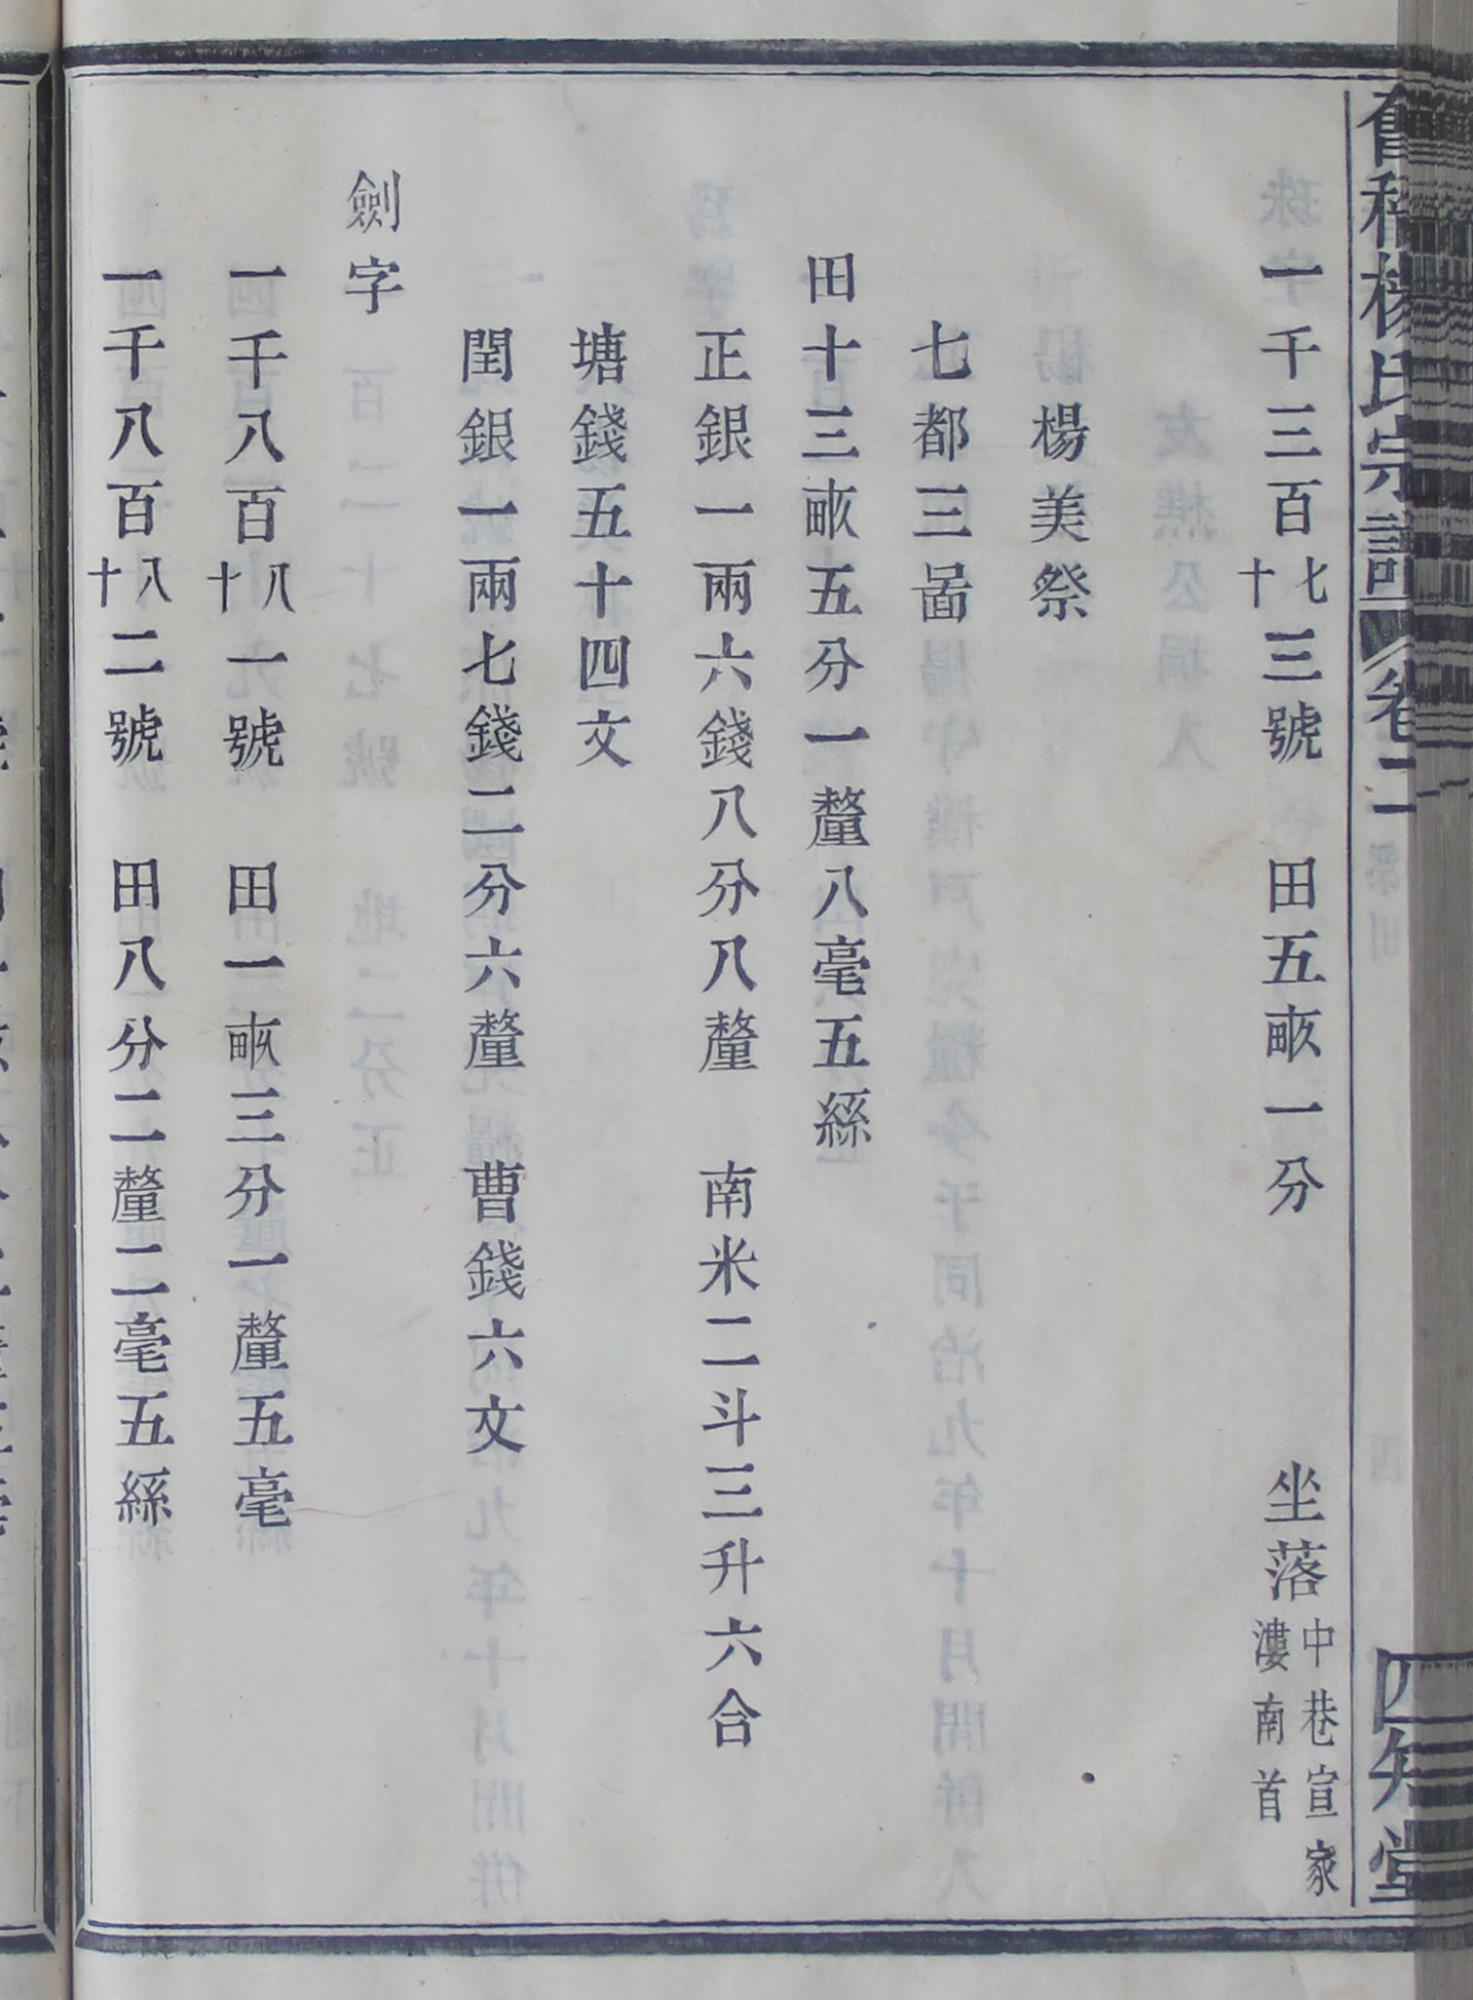 楊氏宗譜 卷二 四知堂
一千三百七十三號 田五畝一分 坐落中巷宣家漊南首
楊美祭
七都三啚
田十三畝五分一釐八毫五絲
正銀一兩六錢八分八釐 南米二斗三升六合
塘錢五十四文
閏銀一兩七錢二分六釐 曹錢六文
劍字
一千八百八十一號 田一畝三分一釐五毫
一千八百八十二號 田八分二釐二毫五絲